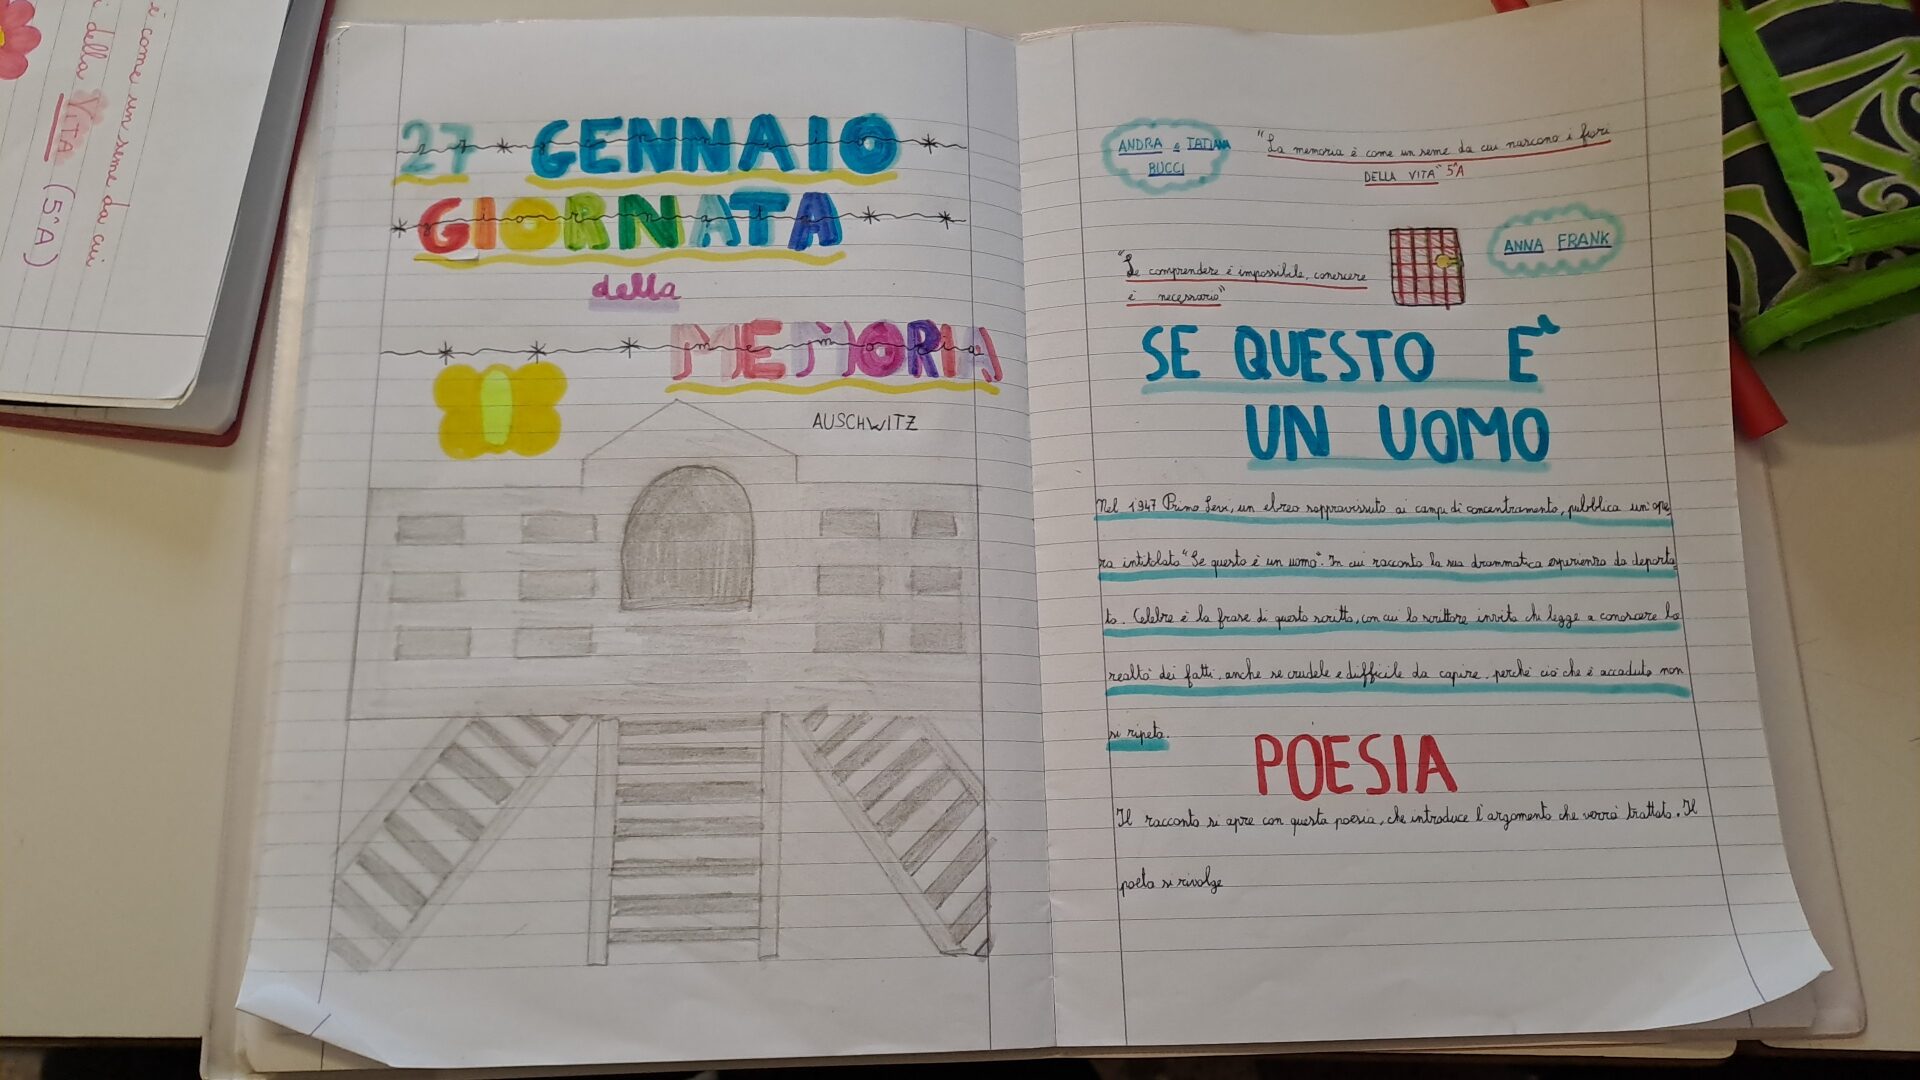 è come un seme da cui
i della VITA (5ªA)
27 GENNAIO
gennaio
GIORNATA
giornata
della
MEMORIA
memoria
AUSCHWITZ
ANDRA e TATIANA
BUCCI
"La memoria è come un seme da cui nascono i fiori
DELLA VITA" 5ªA
ANNA FRANK
"Se comprendere è impossibile, conoscere
è necessario"
SE QUESTO E'
UN UOMO
Nel 1947 Primo Levi, un ebreo sopravvissuto ai campi di concentramento, pubblica un'ope
ra intitolata "Se questo è un uomo". In cui racconta la sua drammatica esperienza da deporta
to. Celebre è la frase di questo scritto, con cui lo scrittore invita chi legge a conoscere la
realtà dei fatti, anche se crudele e difficile da capire, perché ciò che è accaduto non
si ripeta.
POESIA
Il racconto si apre con questa poesia, che introduce l'argomento che verrà trattato. Il
poeta si rivolge